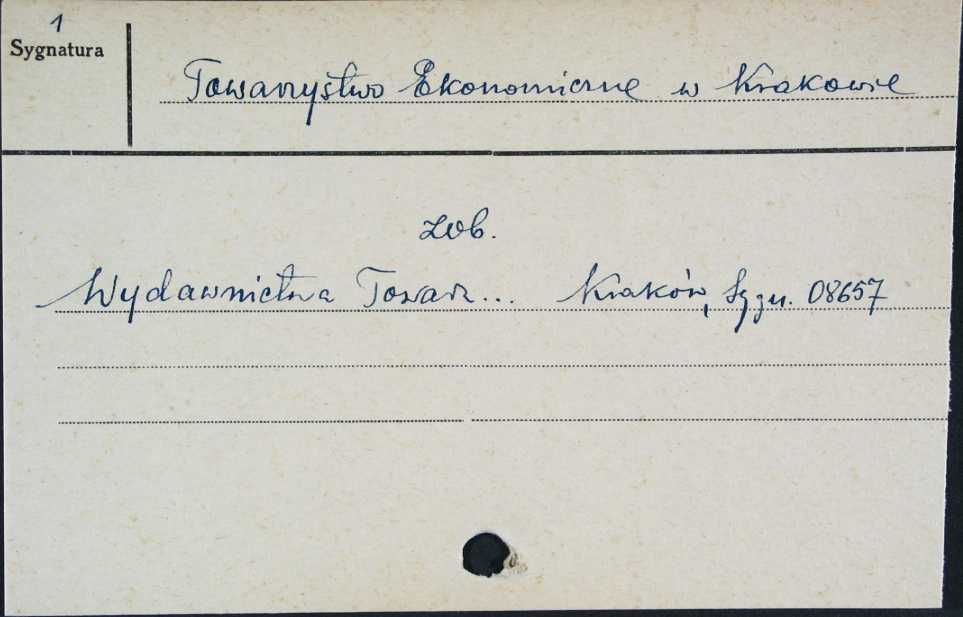 1
Sygnatura
Towarzystwo Ekonomiczne w Krakowie
zob.
Wydawnictwa Towarz... Kraków, Sygn. 08657